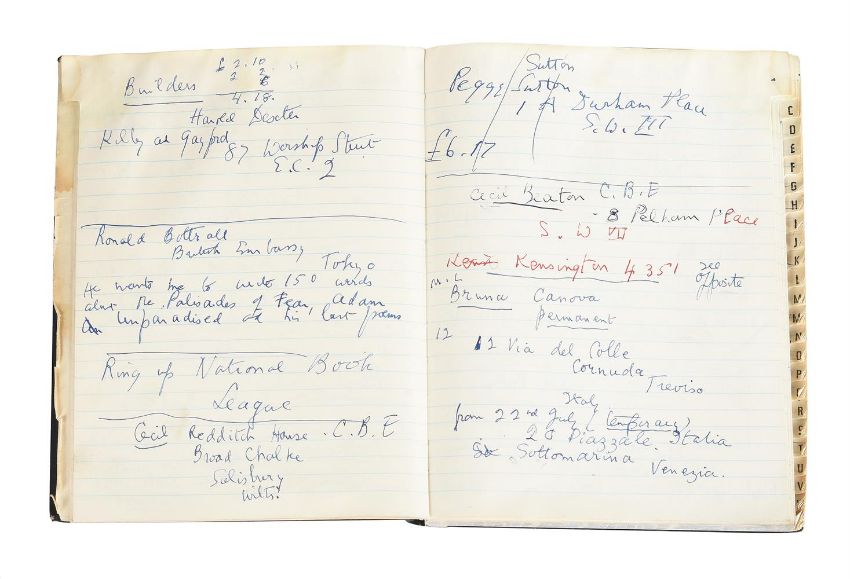 £ 2.10
2 2
Builders 6
4.18.
Harold Dexter
Kelly and Gayford
87 Worship Street
E.C. 2
Ronald Bottrall
British Embassy
Tokyo
He wants me to write 150 words
about the Palisades of Fear, Adam
Unparadised and his last poems
Ring up National Book
League
Cecil Redditch House. C.B.E
Broad Chalke
Salisbury
Wilts.
Sutton
Peggy Sutton
1 A Durham Place
S.W. III
£6.17
Cecil Beaton C.B.E
8 Pelham Place
S.W VII
Kensington 4351
see
opposite
Bruna Canova
permanent
12
12 Via del Colle
Cornuda
Treviso
Italy
from 22nd July (temporary)
28 Piazzale Italia
Sottomarina
Venezia.
C
D
E
F
G
H
I
J
K
L
M
N
O
P
R
S
T
U
V